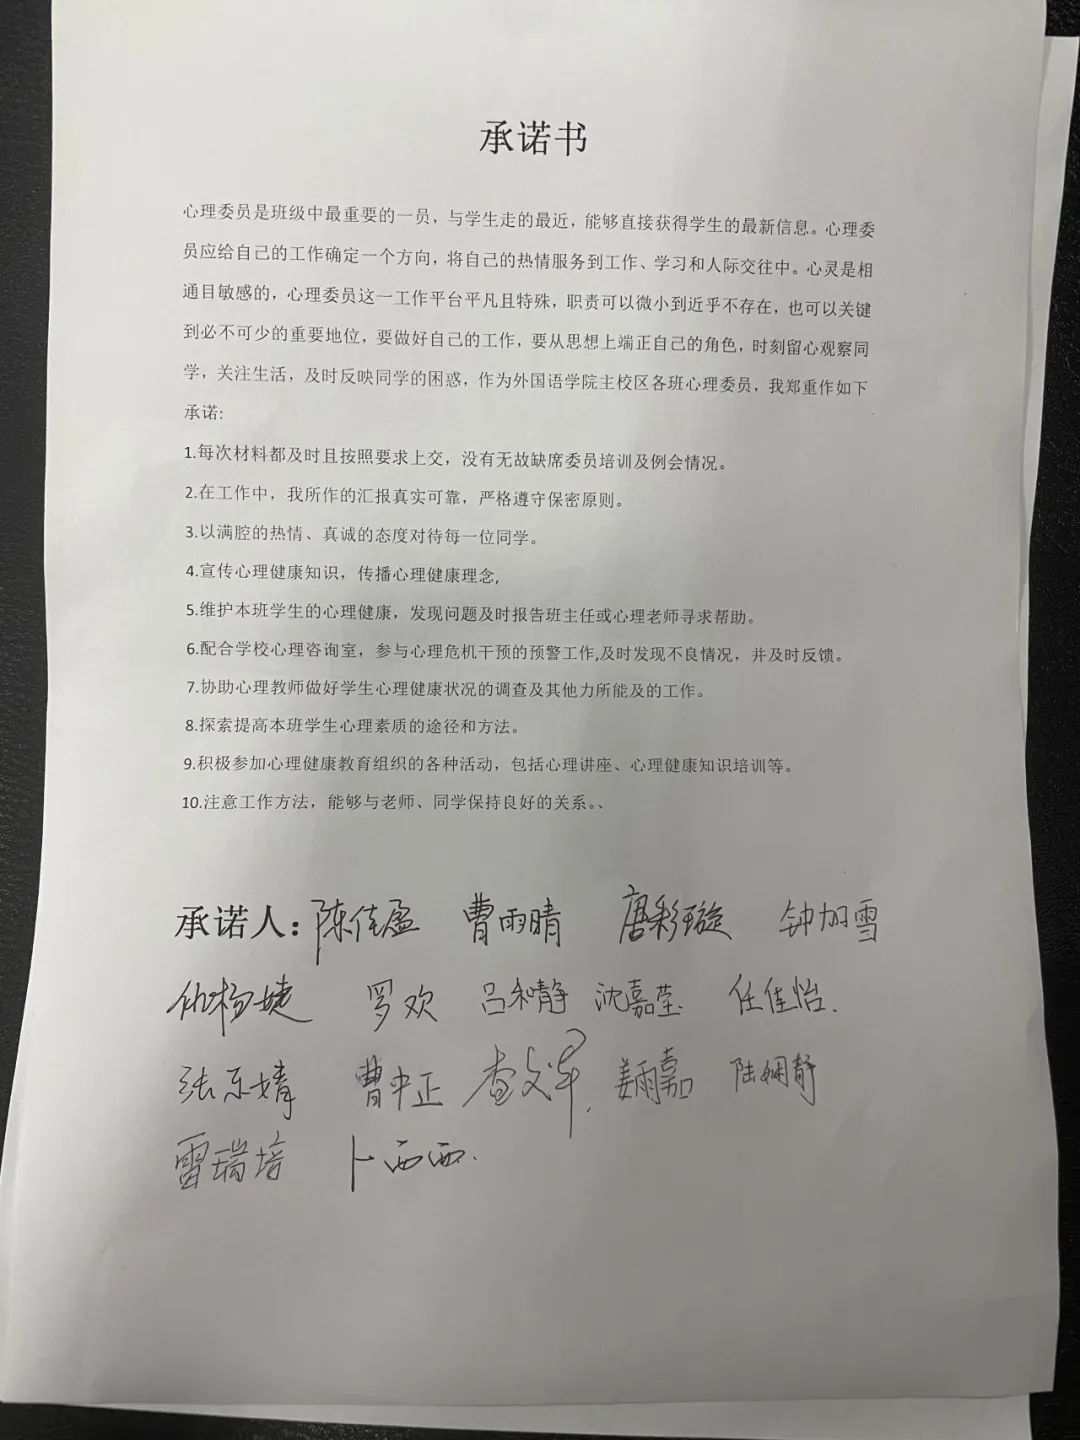 承诺书
心理委员是班级中最重要的一员，与学生走的最近，能够直接获得学生的最新信息。心理委
员应给自己的工作确定一个方向，将自己的热情服务到工作、学习和人际交往中。心灵是相
通目敏感的，心理委员这一工作平台平凡且特殊，职责可以微小到近乎不存在，也可以关键
到必不可少的重要地位，要做好自己的工作，要从思想上端正自己的角色，时刻留心观察同
学，关注生活，及时反映同学的困惑，作为外国语学院主校区各班心理委员，我郑重作如下
承诺:
1.每次材料都及时且按照要求上交，没有无故缺席委员培训及例会情况。
2.在工作中，我所作的汇报真实可靠，严格遵守保密原则。
3.以满腔的热情、真诚的态度对待每一位同学。
4.宣传心理健康知识，传播心理健康理念,
5.维护本班学生的心理健康，发现问题及时报告班主任或心理老师寻求帮助。
6.配合学校心理咨询室，参与心理危机干预的预警工作,及时发现不良情况，并及时反馈。
7.协助心理教师做好学生心理健康状况的调查及其他力所能及的工作。
8.探索提高本班学生心理素质的途径和方法。
9.积极参加心理健康教育组织的各种活动，包括心理讲座、心理健康知识培训等。
10.注意工作方法，能够与老师、同学保持良好的关系。、
承诺人：陈佳盈 曹雨晴 唐彩璇 钟加雪
罗欢 吕和静 沈嘉莹 任佳怡.
张乐婧 曹中正 姜雨嘉 陆娴静
雷瑞培 卜西西.